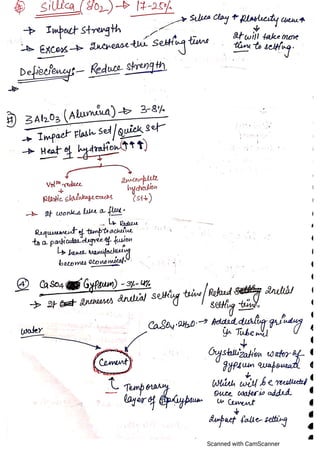 Silica (SiO2) → 17-25%
→ Impact Strength
→ Silica clay + Plasticity
↓
It will take more
time to setting.
→ Excess → Increase the Setting time
Deficiency:- Reduce strength
③ 3Al2O3 (Alumina) → 3-8%
→ Impact Flash Set / Quick set
→ Heat of hydration (↑↑↑)
Volm reduce
↓
Plastic shrinkage
Incomplete
hydration
(Set)
→ It works like a flux.
↳ Reduce
Requirement of temp
to a particular degree of fusion
↳ hence manufacturing
becomes economical.
④ CaSO4 (Gypsum) - 3%-4%
→ It increases Initial setting time / Retard Initial
setting time.
CaSO4.2H2O → Added during grinding
in Tube mill
↓
Crystallization water of
gypsum evaporate
↓
Which will be recollected
once water is added
in cement
↓
Impact false setting
Water
Cement
Temporary
layer of Gypsum
Scanned with CamScanner